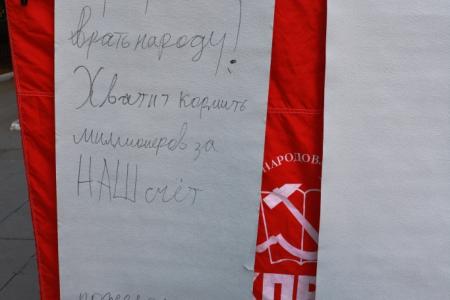 врать народу!
Хватит кормить
миллионеров за
НАШ счёт
НАРОДОВ
КПР